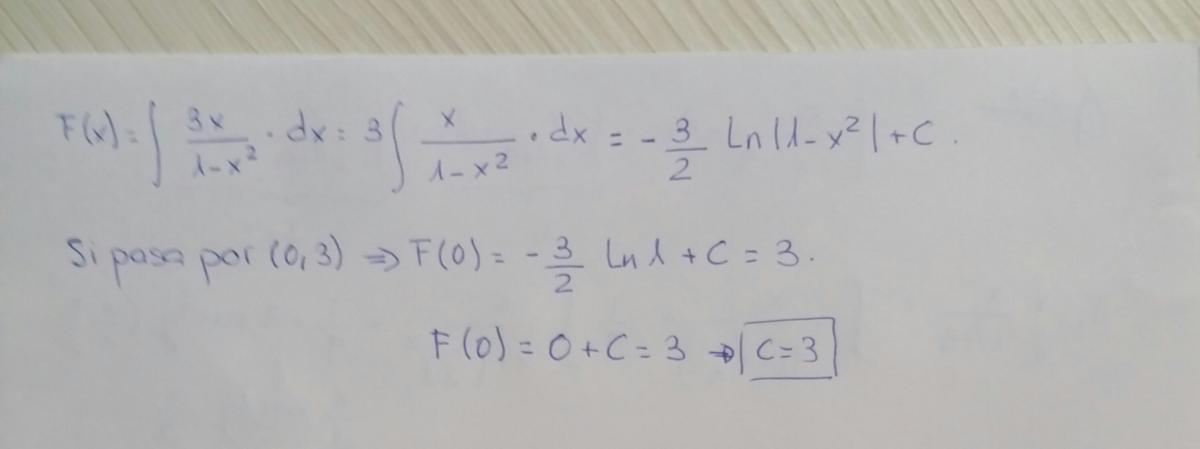 F(x) = ∫ 3x/(1-x²) · dx = 3∫ x/(1-x²) · dx = - 3/2 Ln|1-x²| + C.
Si pasa por (0,3) ⇒ F(0) = - 3/2 Ln 1 + C = 3.
F(0) = 0 + C = 3 → C = 3